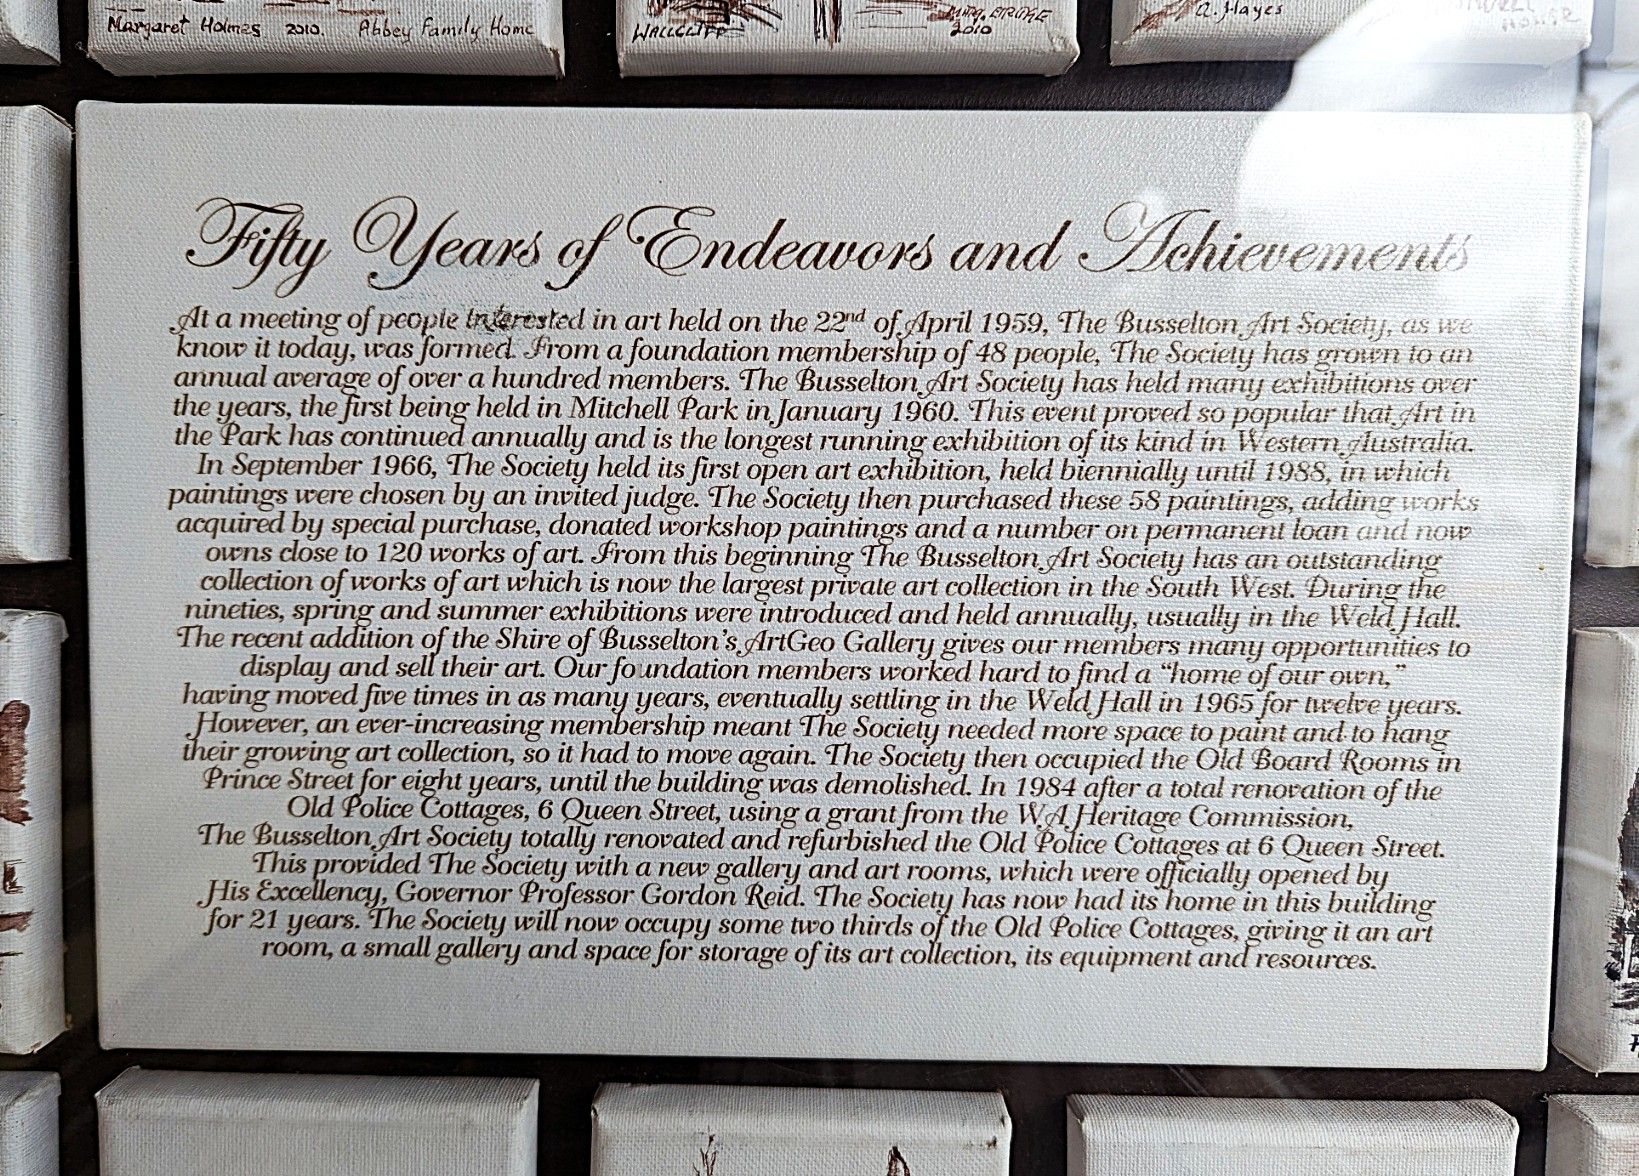 Margaret Holmes 2010. Abbey Family Home
WALLCLIFFE
2010
A. Hayes
Fifty Years of Endeavors and Achievements
At a meeting of people interested in art held on the 22nd of April 1959, The Busselton Art Society, as we
know it today, was formed. From a foundation membership of 48 people, The Society has grown to an
annual average of over a hundred members. The Busselton Art Society has held many exhibitions over
the years, the first being held in Mitchell Park in January 1960. This event proved so popular that Art in
the Park has continued annually and is the longest running exhibition of its kind in Western Australia.
In September 1966, The Society held its first open art exhibition, held biennially until 1988, in which
paintings were chosen by an invited judge. The Society then purchased these 58 paintings, adding works
acquired by special purchase, donated workshop paintings and a number on permanent loan and now
owns close to 120 works of art. From this beginning The Busselton Art Society has an outstanding
collection of works of art which is now the largest private art collection in the South West. During the
nineties, spring and summer exhibitions were introduced and held annually, usually in the Weld Hall.
The recent addition of the Shire of Busselton's ArtGeo Gallery gives our members many opportunities to
display and sell their art. Our foundation members worked hard to find a “home of our own,”
having moved five times in as many years, eventually settling in the Weld Hall in 1965 for twelve years.
However, an ever-increasing membership meant The Society needed more space to paint and to hang
their growing art collection, so it had to move again. The Society then occupied the Old Board Rooms in
Prince Street for eight years, until the building was demolished. In 1984 after a total renovation of the
Old Police Cottages, 6 Queen Street, using a grant from the WA Heritage Commission,
The Busselton Art Society totally renovated and refurbished the Old Police Cottages at 6 Queen Street.
This provided The Society with a new gallery and art rooms, which were officially opened by
His Excellency, Governor Professor Gordon Reid. The Society has now had its home in this building
for 21 years. The Society will now occupy some two thirds of the Old Police Cottages, giving it an art
room, a small gallery and space for storage of its art collection, its equipment and resources.